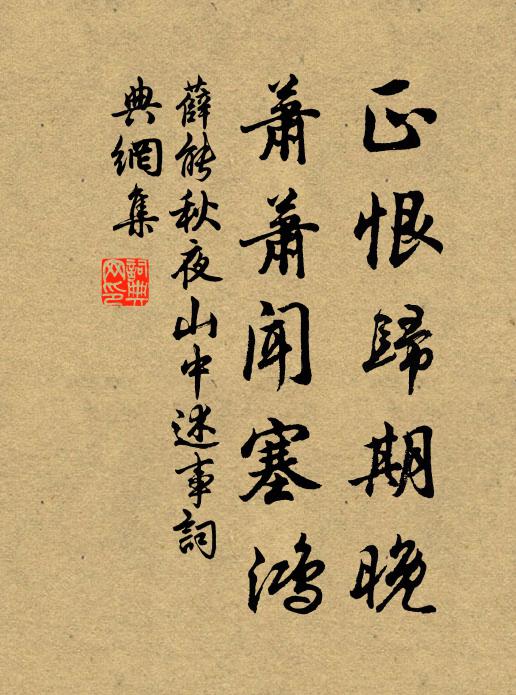 正恨歸期晚
蕭蕭聞塞鴻
薛能秋夜山中述事詞
典網集
詞典網印